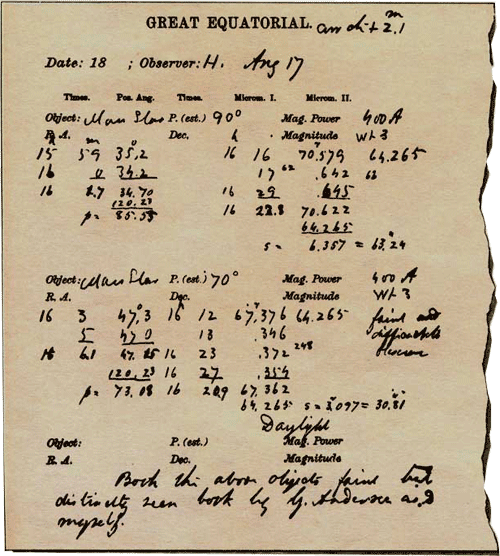 GREAT EQUATORIAL.
Date: 18 ; Observer: H. Aug 17
Times. Pos. Ang. Times. Microm. I. Microm. II.
Object: Mars Star P. (est.) 90° Mag. Power 400 A
R. A. Dec. h Magnitude Wt 3
15 59 35,2 16 16 70,579 64.265
16 0 34.2 17 .642
16 29 .645
16 34.70 16 22.8 70.622
120.23 64.265
p = s = 6.357 = 63.24
Object: Mars Star P. (est.) 70° Mag. Power 400 A
R. A. Dec. Magnitude Wt 3
16 3 47,3 16 12 67,376 64.265 faint and
5 47 0 13 .346 difficult to
16 6.1 47.15 16 23 .372 observe
120,23 16 27 .354
p = 73.08 16 20.9 67.362
64.265 s = 3,097 = 30.81
Daylight
Object: P. (est.) Mag. Power
R. A. Dec. Magnitude
Both the above objects faint but
distinctly seen both by G. Anderson and
myself.